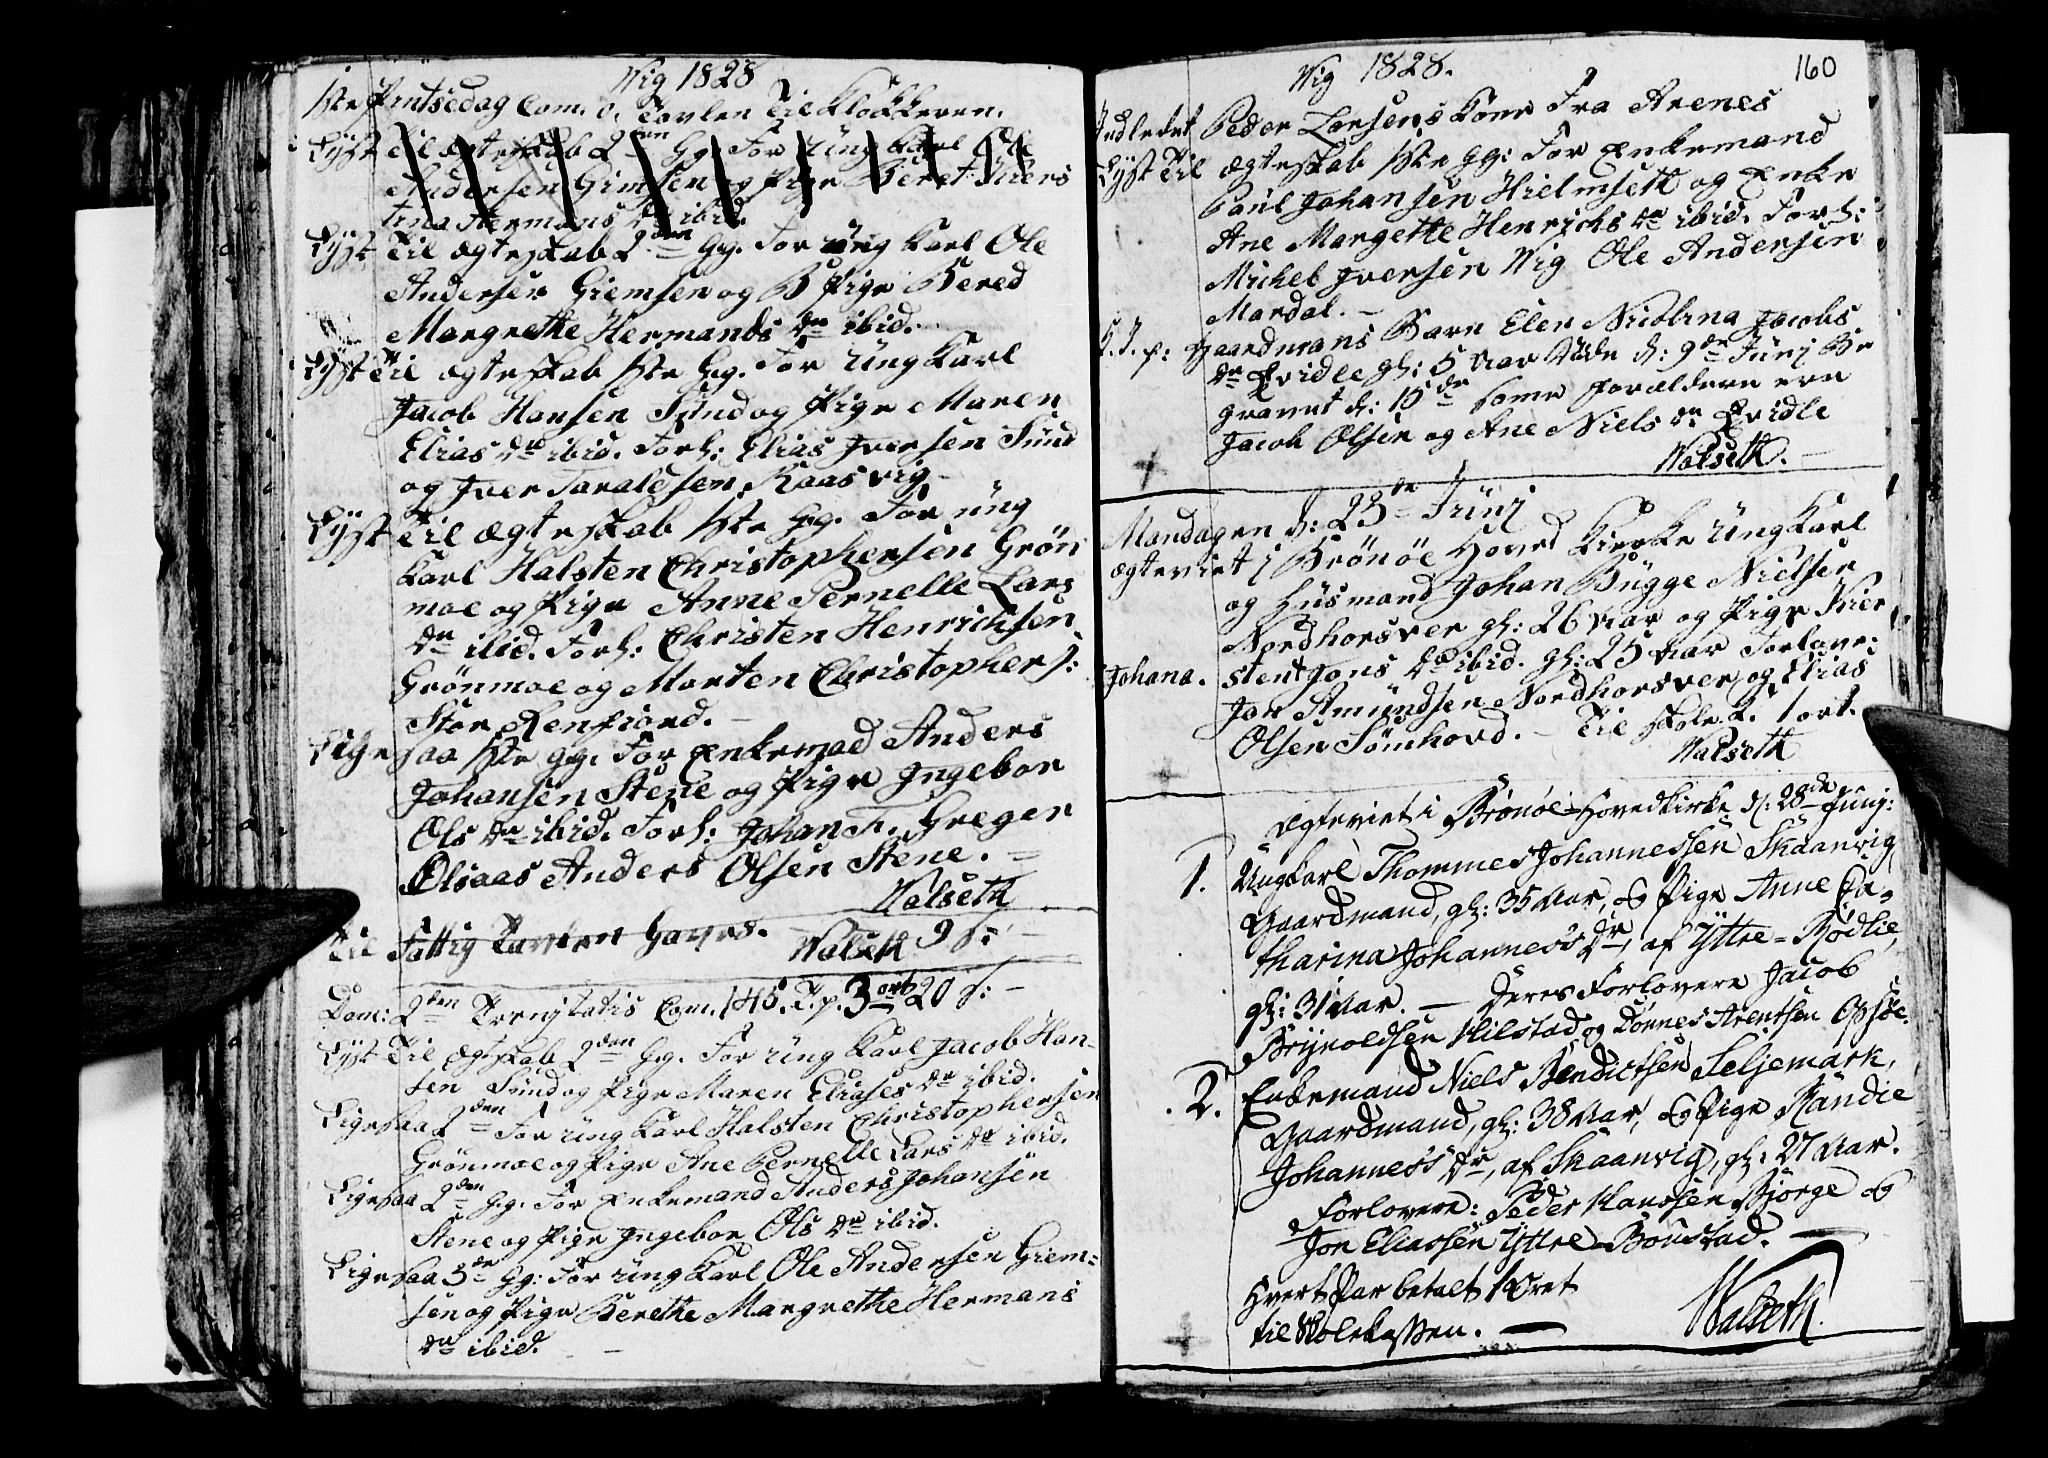 Wig 1828
1ste Pintsedag Com. 0. Tavlen Til Klokkeren.
Lyst Til ægteskab 2den Gg. For ung karl Ole
Andersen Gimsen og Pige Beret Kiers
tina Hermans dr ibid.
Lyst Til ægteskab 2den Gg. For ung karl Ole
Andersen Giemsen og Pige Bered
Margrethe Hermands dr ibid.
Lyst Til ægteskab 1ste Gg. For ung karl
Jacob Hansen Sund og Pige Maren
Elias dr ibid. Forl: Elias Iversen Sund
og Iver Taralesen Kaasvig
Lyst Til ægteskab 1ste Gg. For ung
karl Halsten Christophersen Grøn
moe og Pige Anne Pernelle Lars
dr ibid. Forl: Christen Henrichsen
Grønmoe og Morten Christophers:
Stor Renfiord.
Ligesaa 1ste gg. For Enkemad Anders
Johansen Stene og Pige Ingebor
Ols dr ibid. Forl: Johan F. Greger
Olsaas Anders Olsen Stene.
Walseth
Til Fattig Tavlen Gaves. 9 s:
Walseth
Dom: 2den Trenitatis Com. 145. T. p. 3 ort 20 s:
Lyst Til Ægtskab 2den Gg. For ung karl Jacob Han-
sen Sund og Pige Maren Eliases dr ibid.
Ligesaa 2den For ung karl Halsten Christophersen
Grønmoe og Pige Ane Pernelle Lars dr ibid.
Ligesaa 2den Gg. For Enkemand Anders Johansen
Stene og Pige Ingebor Ols dr ibid.
Ligesaa 3de Gg: For ung karl Ole Andersen Giem-
sen og Pige Berethe Margrethe Hermans
dr ibid.
Wig 1828. 160
Indledet Peder Larsens kone Fra Arenes
Lyst Til ægteskab 1ste gg: For Enkemand
Paul Johansen Hielmseth og Enke
Ane Margette Henrichs dr ibid. Forl:
Michel Iversen Wig Ole Andersen
Mardal.
B. J. p: Gaardmans Barn Elen Nicolina Jacobs
dr Qvidle gl: 5 Aar Døde d: 9de Junj Be
gravet d: 15de hvis Forældere ere
Jacob Olsen og Ane Niels dr Qvidle
Walseth.
Mandagen d: 23de Junj
ægteviet j Brønøe Hoved kierke ung karl
og Husmand Johan Bugge Nielsen
Nordhorsver gl: 26 Aar og Pige Kier
Johana. sten Jons dr ibid. gl: 25 Aar Forlove:
Jon Amundsen Nordhorsver og Elias
Olsen Sømhovd. Til Skole k. 1 ort.
Walseth
Ægteviet i Brønøe Hovedkirke d: 28de Junj:
1. Ungkarl Thommes Johannessen Skaanvig
Gaardmand, gl: 35 Aar, og Pige Anne Ca-
tharina Johannes's dr, af Yttre-Rødlie,
gl: 31 Aar. Deres Forlovere Jacob
Brynoldsen Hilstad og Dønnes Arentsen Opsøe.
2. Enkemand Niels Bendictsen Seljemark,
Gaardmand, gl: 38 Aar, og Pige Randie
Johannes's dr, af Skaanvig, gl: 27 Aar.
Forlovere: Peder Hanssen Bjørge og
Jon Eliassen Yttre-Boustad.
Hvert Par betalt 1 Ort
til Skolekassen.
Walseth